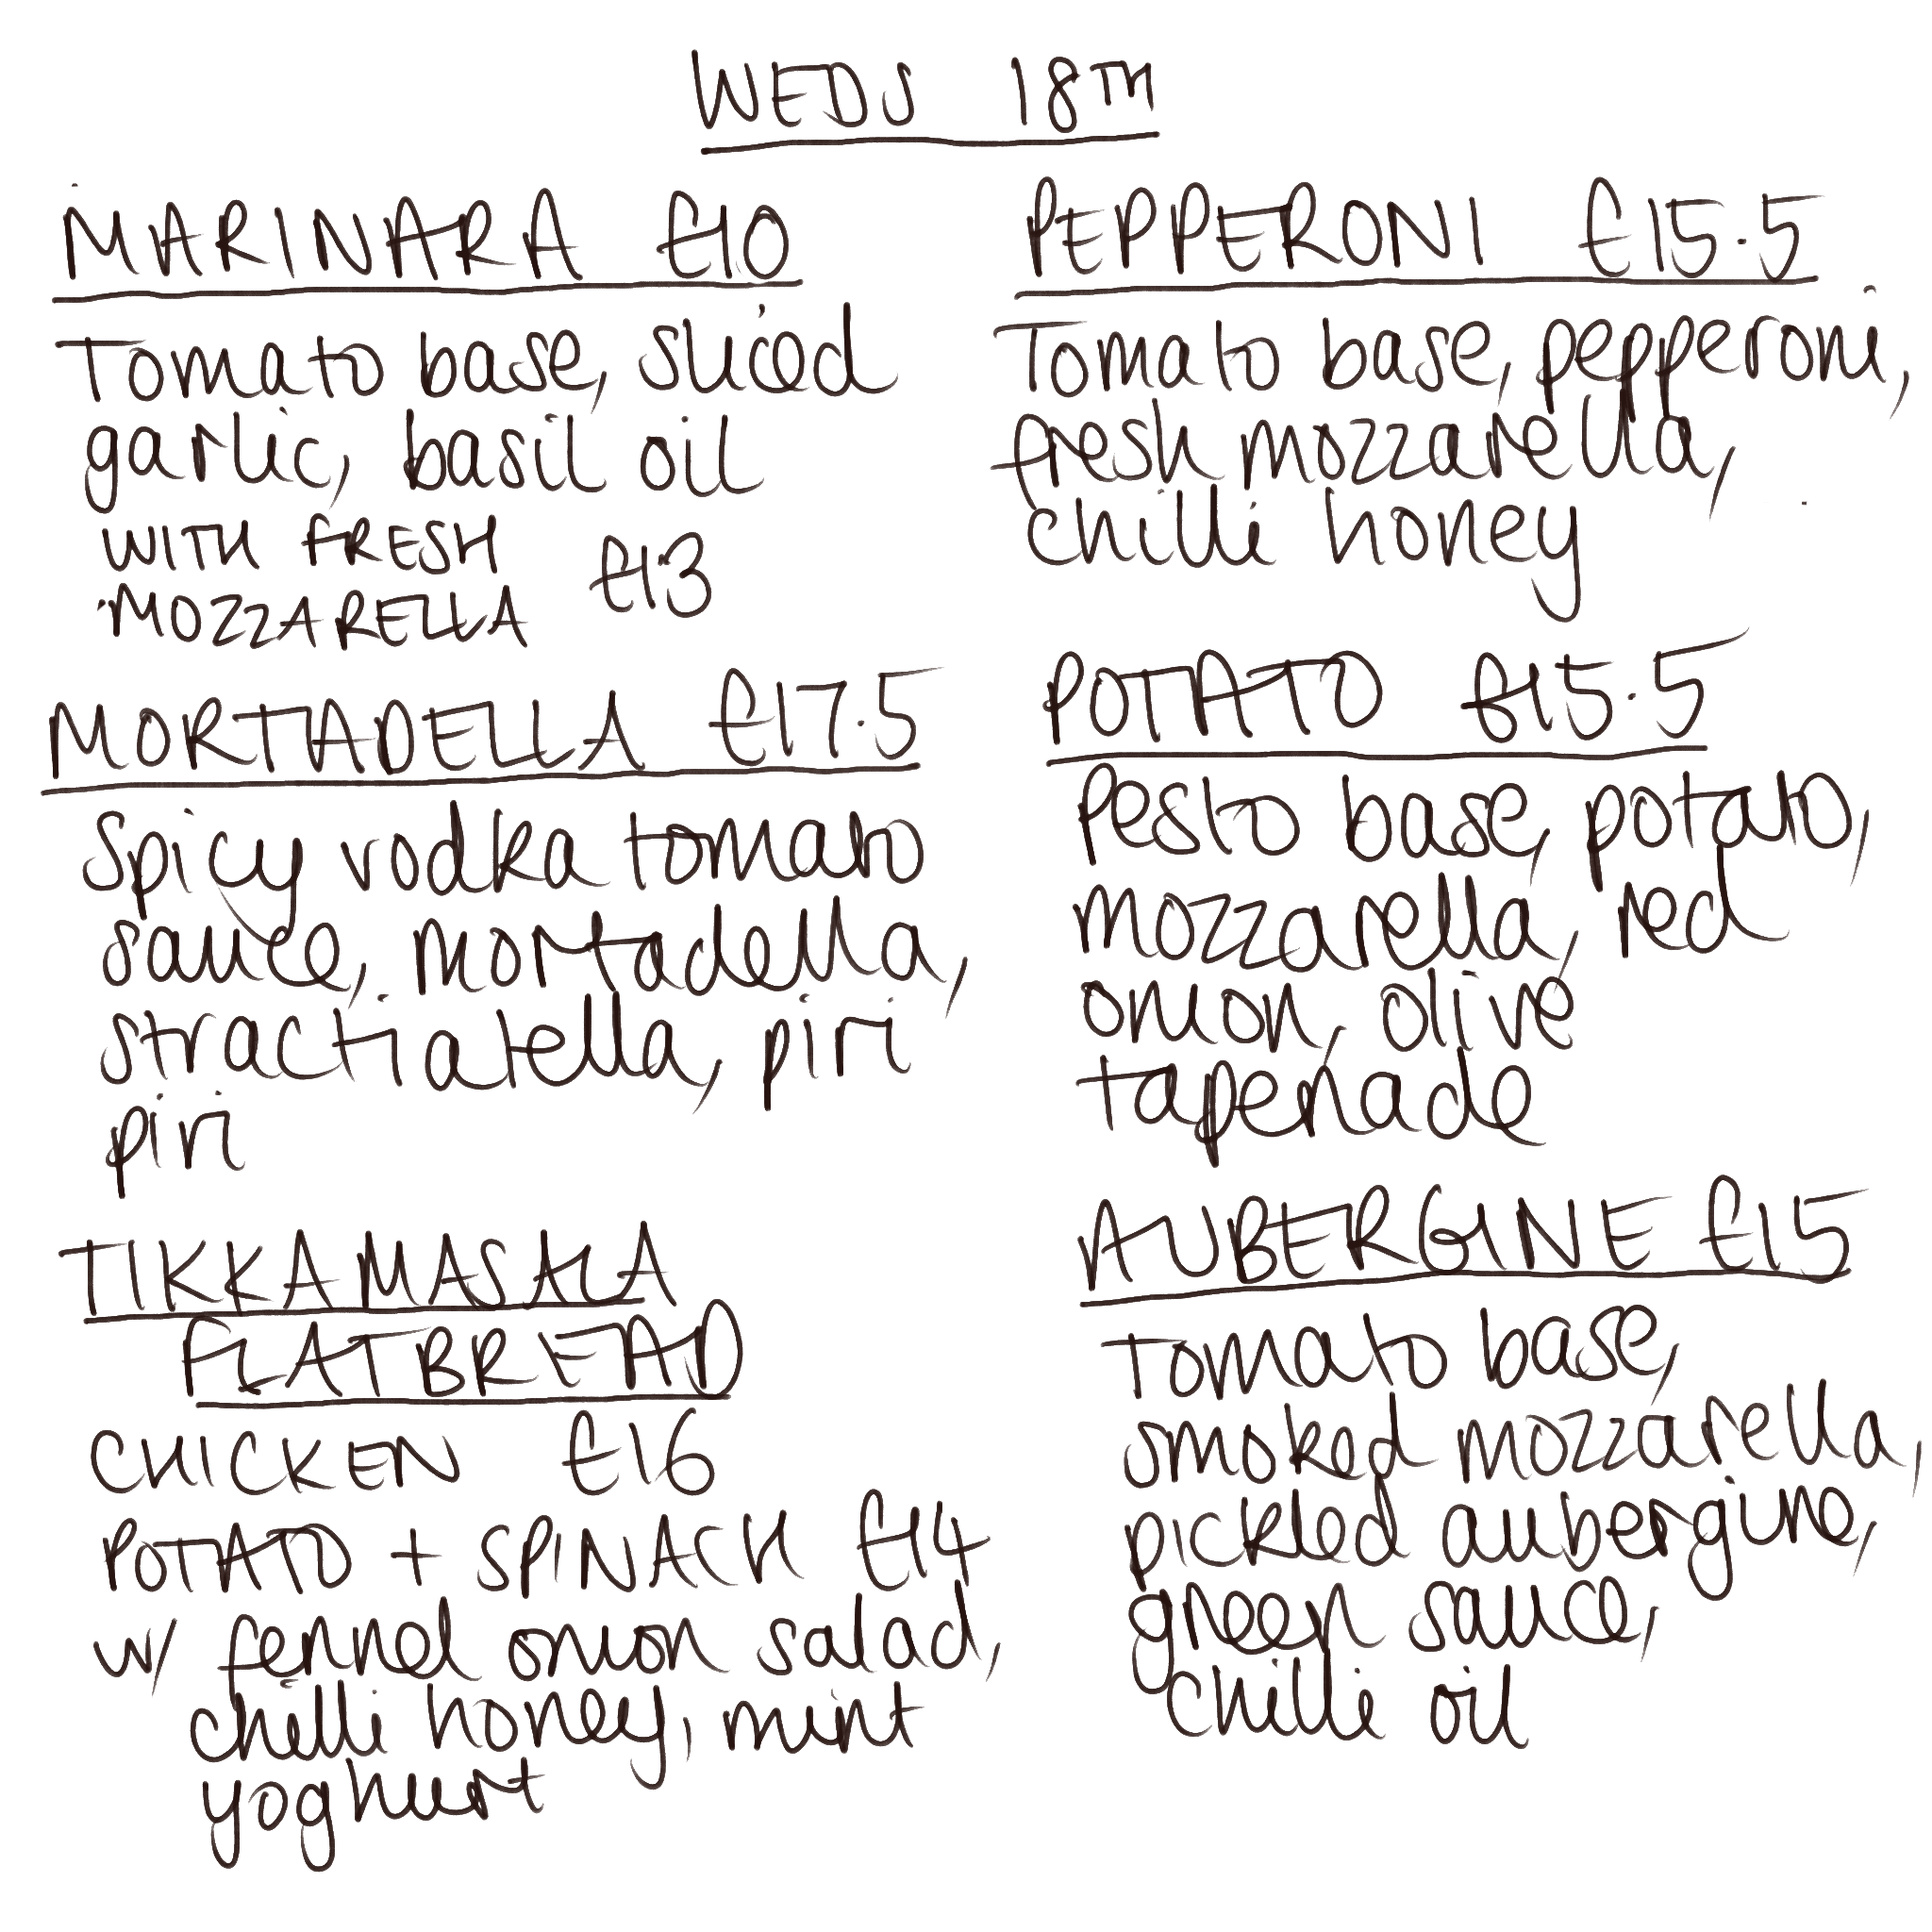 WEDS 18TH
MARINARA £10
Tomato base, sliced
garlic, basil oil
WITH FRESH
MOZZARELLA £13
MORTADELLA £17.5
Spicy vodka tomato
sauce, mortadella,
stractiatella, piri
piri
TIKKA MASALA
FLATBREAD
CHICKEN £16
POTATO + SPINACH £14
w/ fennel onion salad,
chilli honey, mint
yoghurt
PEPPERONI £15.5
Tomato base, pepperoni,
fresh mozzarella,
chilli honey
POTATO £15.5
Pesto base, potato,
mozzarella, red
onion, olive
tapenade
AUBERGINE £15
Tomato base,
smoked mozzarella,
pickled aubergine,
green sauce,
chilli oil